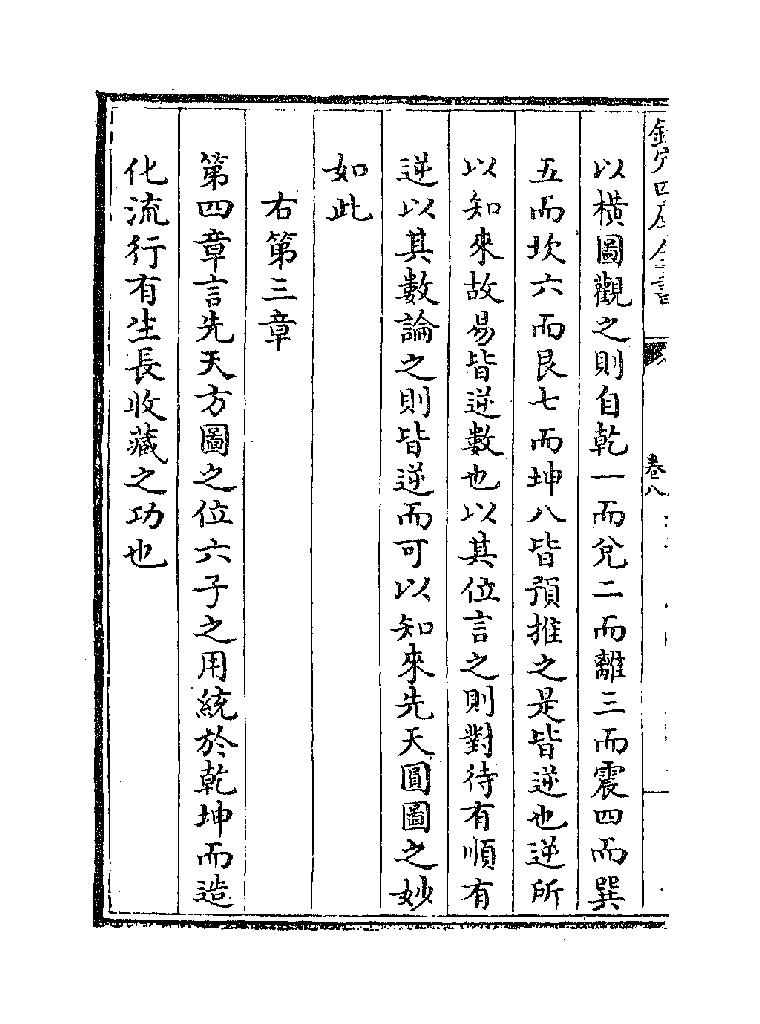 欽定四庫全書
卷八
以橫圖觀之則自乾一而兌二而離三而震四而巽
五而坎六而艮七而坤八皆預推之是皆逆也逆所
以知來故易皆逆數也以其位言之則對待有順有
逆以其數論之則皆逆而可以知來先天圓圖之妙
如此
右第三章
第四章言先天方圖之位六子之用統於乾坤而造
化流行有生長收藏之功也